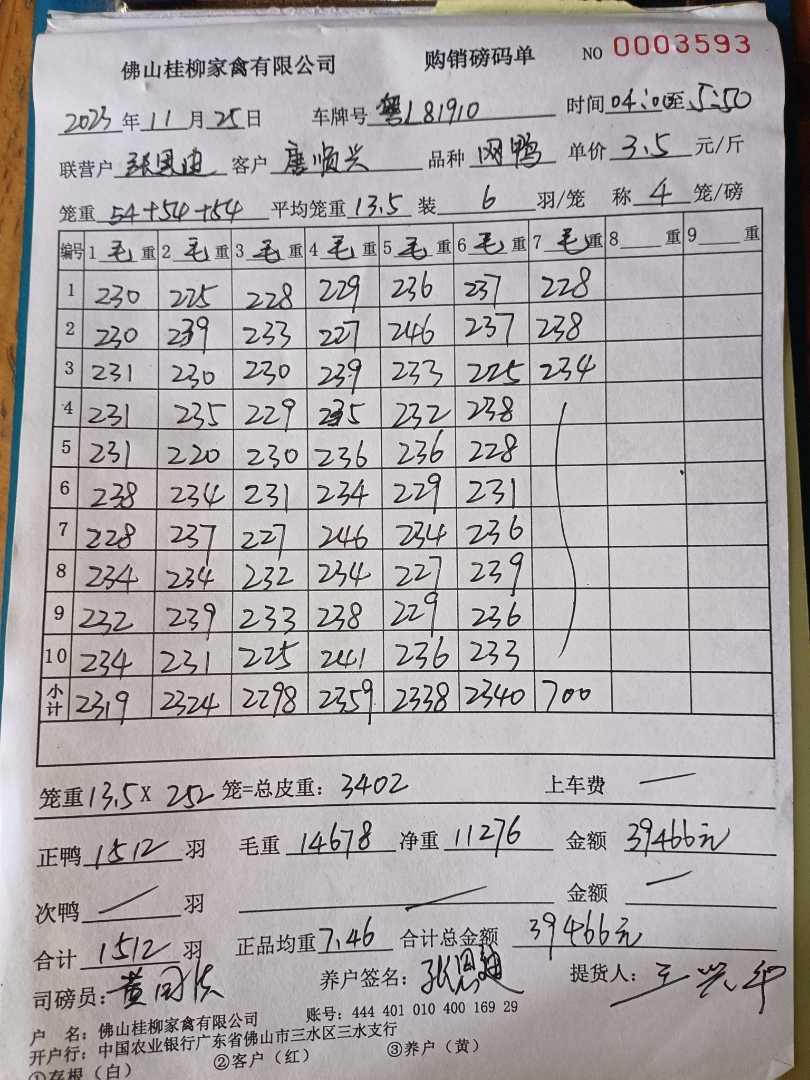 佛山桂柳家禽有限公司 购销磅码单 NO 0003593
2023年11月25日 车牌号 粤L81910 时间04:00至5:50
联营户 张恩迪 客户 唐顺兴 品种 网鸭 单价 3.5 元/斤
笼重 54+54+54 平均笼重 13.5 装 6 羽/笼 称 4 笼/磅
编号 1 毛 重 2 毛 重 3 毛 重 4 毛 重 5 毛 重 6 毛 重 7 毛 重 8 重 9 重
1 230 225 228 229 236 237 228
2 230 239 233 227 246 237 238
3 231 230 230 239 233 225 234
4 231 235 229 235 232 238
5 231 220 230 236 236 228
6 238 234 231 234 229 231
7 228 237 227 246 234 236
8 234 234 232 234 227 239
9 232 239 233 238 229 236
10 234 231 225 241 236 233
小计 2319 2324 2298 2359 2338 2340 700
笼重 13.5 X 252 笼=总皮重: 3402 上车费 —
正鸭 1512 羽 毛重 14678 净重 11276 金额 39466元
次鸭 — 羽 — 金额 —
合计 1512 羽 正品均重 7.46 合计总金额 39466元
司磅员: 黄 养户签名: 张恩迪 提货人: 王兴
户 名: 佛山桂柳家禽有限公司 账号: 444 401 010 400 169 29
开户行: 中国农业银行广东省佛山市三水区三水支行
①存根(白) ②客户(红) ③养户(黄)